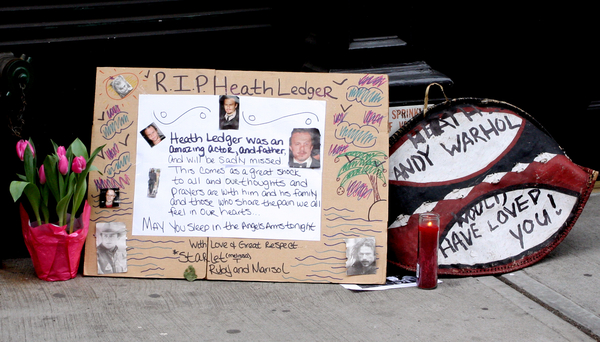 R.I.P. Heath Ledger
Heath Ledger was an
amazing actor, and father.
And will be Sadly missed
This comes as a great shock
to all and our thoughts and
prayers are with him and his family
and those who share the pain we all
feel in our hearts...
May You Sleep in the Angels Arms tonight
With Love & Great Respect
Starlet
Ruby and Marisol
SPRIN
HEATH
ANDY WARHOL
WOULD
HAVE LOVED
YOU!